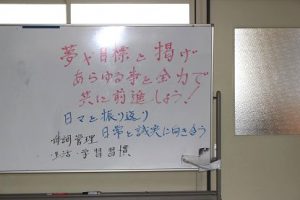 夢や目標を掲げ
あらゆる事を全力で
共に前進しよう!
日々を振り返り
日常を誠実に向き合う
体調管理
生活・学習習慣